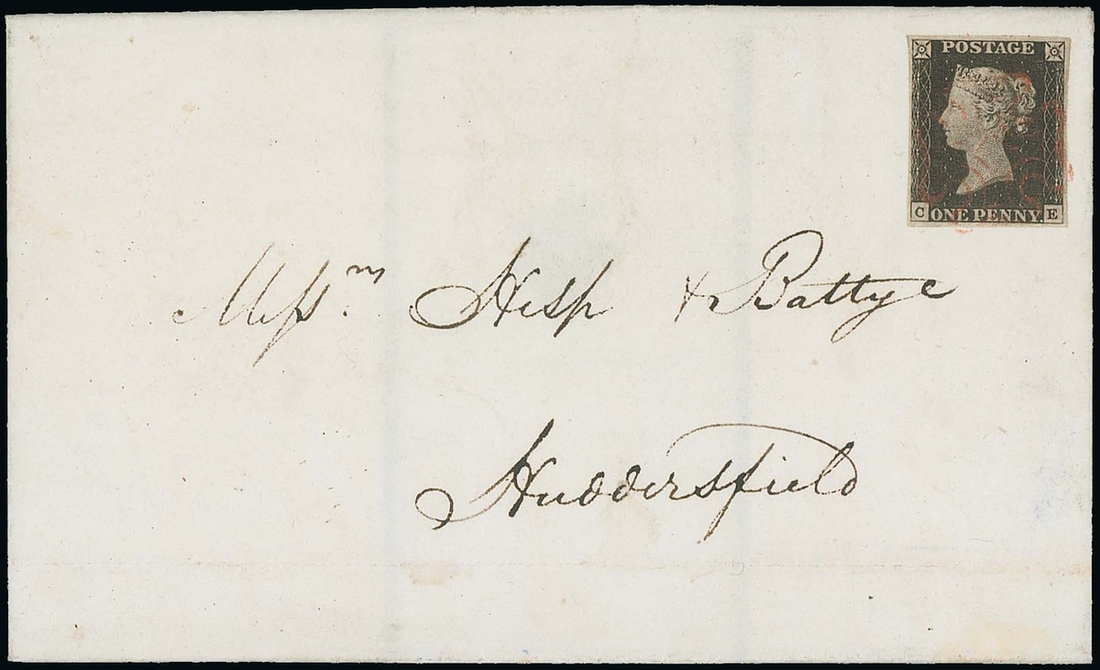 POSTAGE
C ONE PENNY. E
Mess.rs Hesp & Battye
Huddersfield